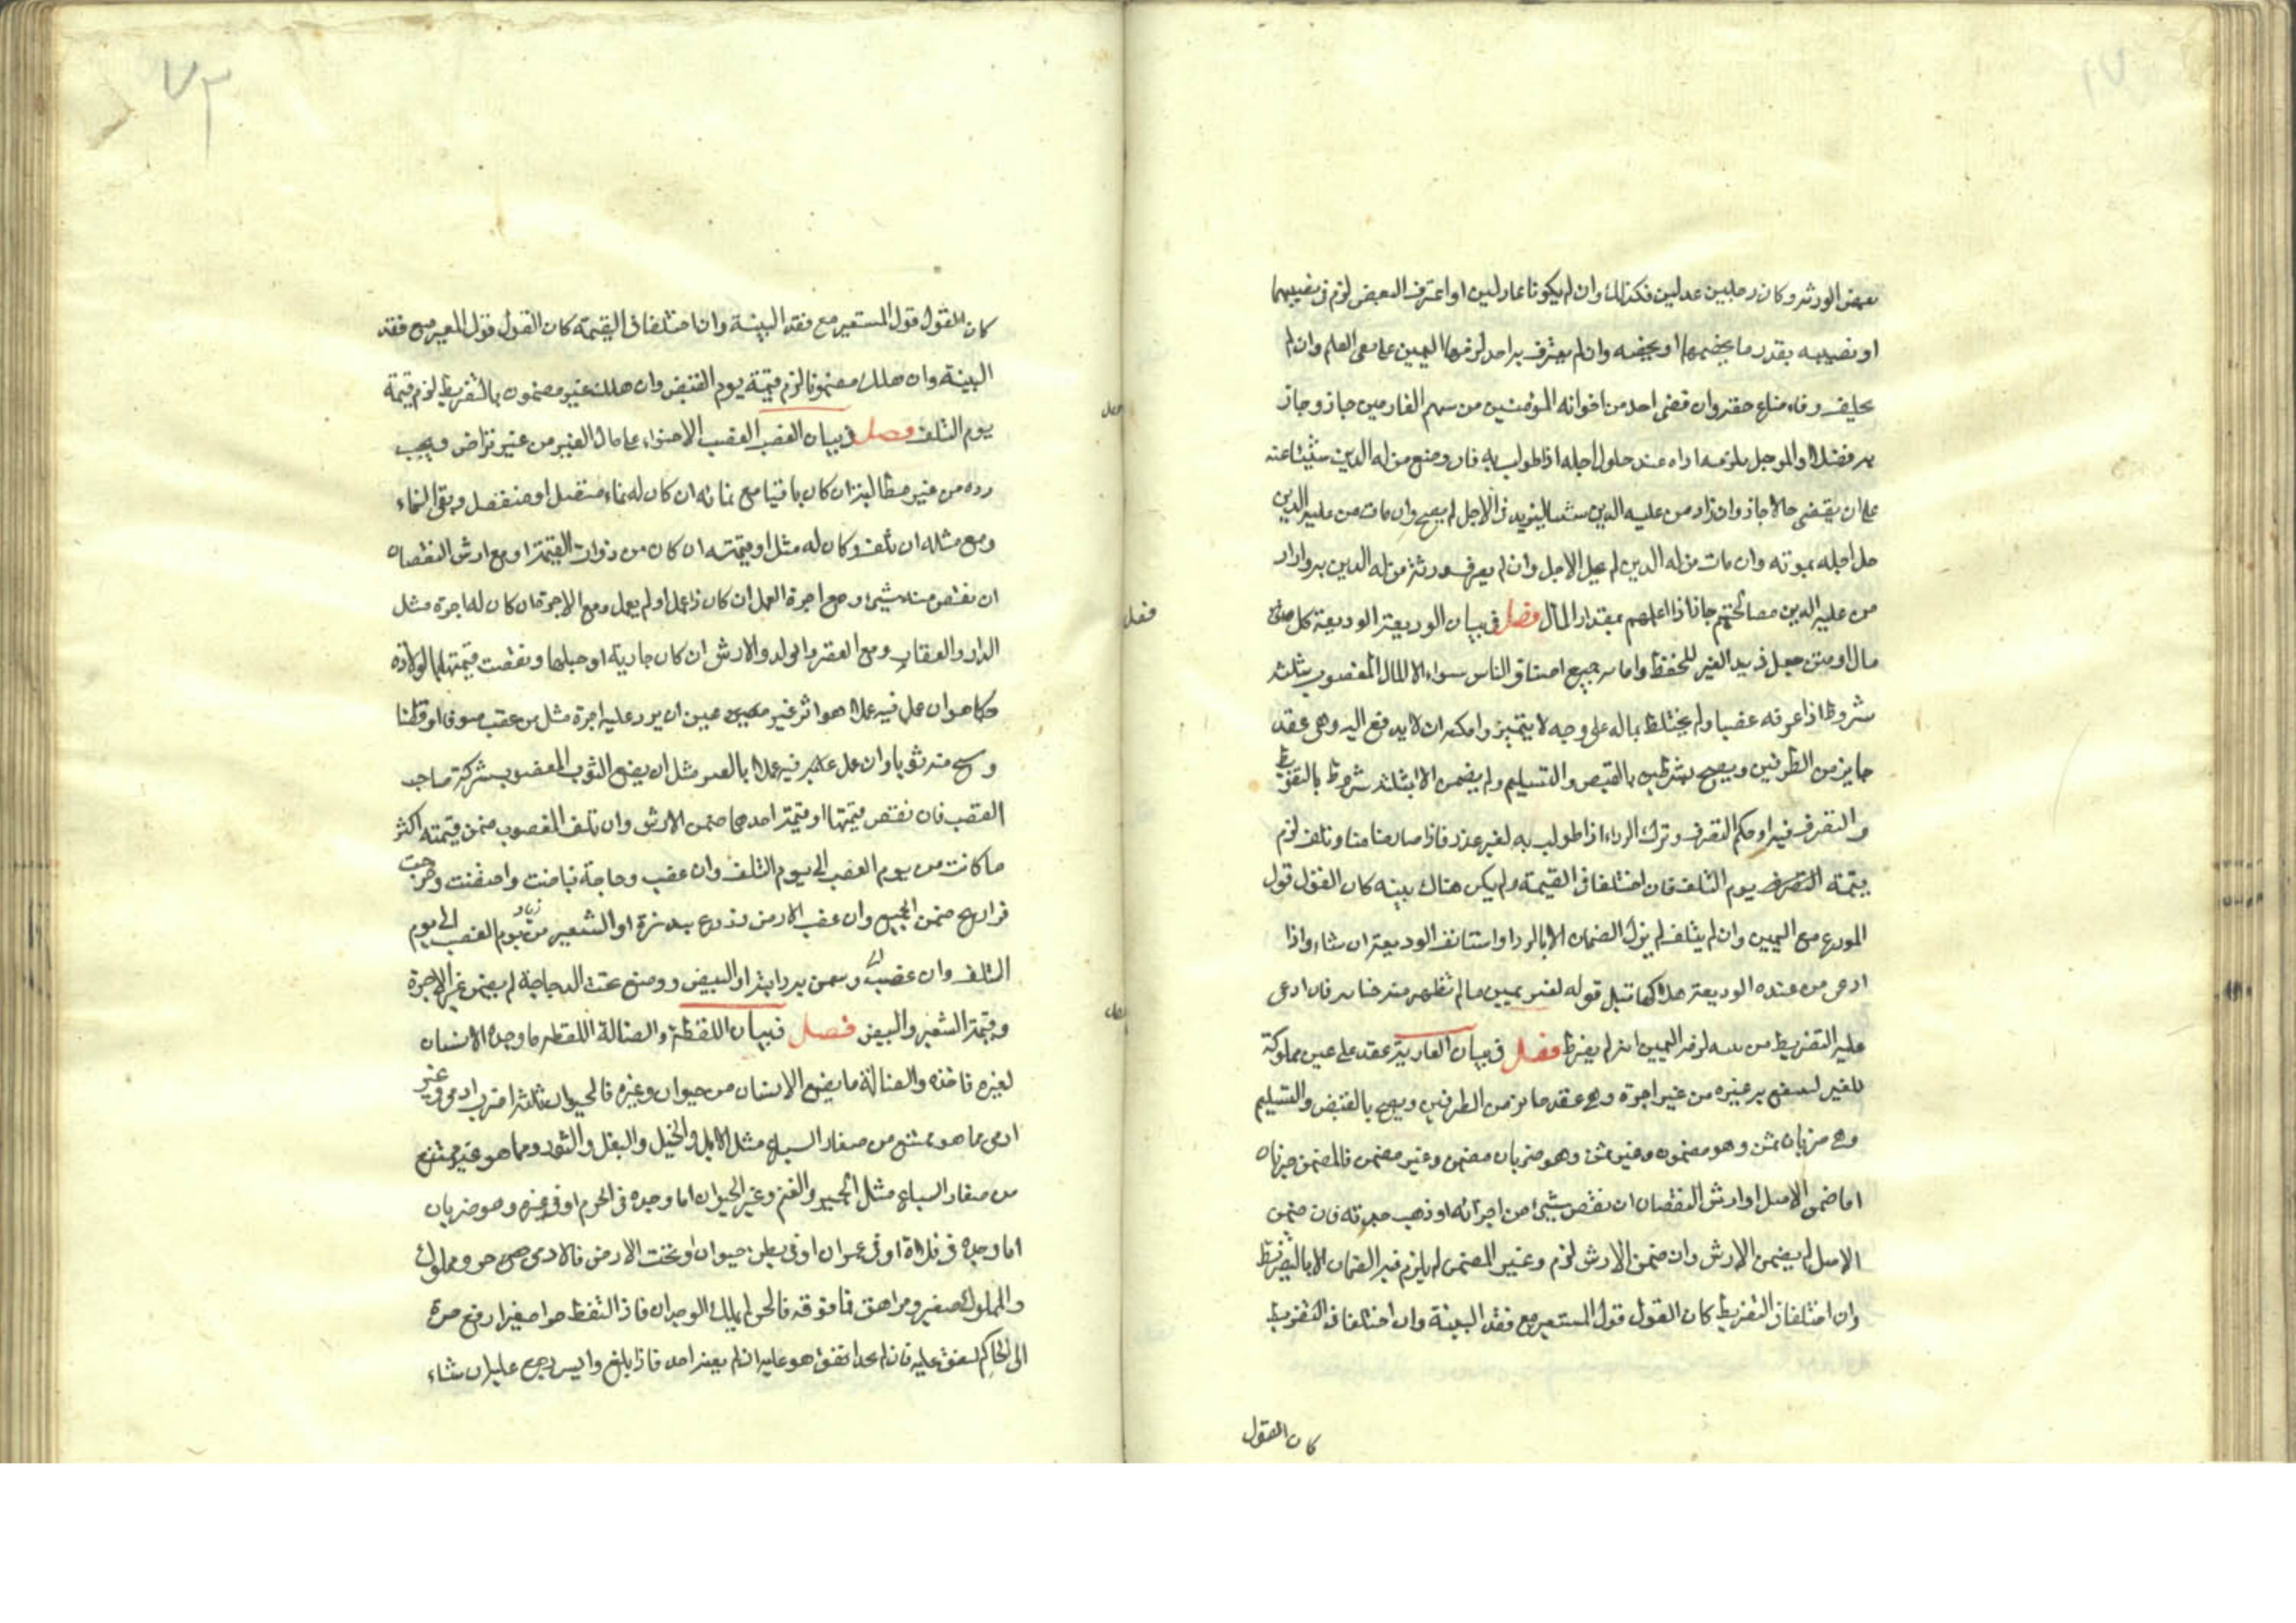 بعض الورثه وكان رجلين عدلين فكذلك وان لم يكونا عادلين او اعترف البعض لزم فى نصيبهما
او نصيبه بقدر ما يخصهما او يخصه وان لم يعترف به احد لزمها اليمين على نفى العلم وان لم
يحلف وفاء ضاع حقه وان قضى احد من اخوانه المؤمنين من سهم الغارمين جاز وجاز
والموجل يلزمه اداه عند حلول اجله اذا طولب به فان وضع من له الدين شيئا عنه
على ان يقضى حالا جاز وان زاد من عليه الدين شيئا ليزيد فى الاجل لم يصح وان مات من عليه الدين
حل اجله بموته وان مات من له الدين لم يحل الاجل وان لم يعرف ورثة من له الدين به واراد
من عليه الدين مصالحتهم جاز اذا اعلمهم بمقدار المال فصل فى بيان الوديعة الوديعة كل
مال او متن جعل فى يد الغير للحفظ واما جميع اصناف الناس سواء الا المال المغصوب بثلثه
شروط اذا عرفه غصبا ولم يختلط بماله على وجه لا يتميز وامكنه ان لا يدفع اليه وهى عقد
جايز من الطرفين ويصح بشرطين بالقبض والتسليم ولم يضمن الا بثلثه شروط بالتفريط
والتصرف فيه او حكم التصرف وترك الرد اذا طولب به لغير عذر فاذا صار ضامنا وتلف لزم
قيمة التصرف يوم التلف فان اختلفا فى القيمة ولم يكن هناك بينه كان القول قول
المودع مع اليمين وان لم يتلف لم يزل الضمان الا بالرد او استانف الوديعة ان شاء واذا
ادعى من عنده الوديعة هلاكها قبل قوله لغير يمين ما لم تظهر منه خيانه فان ادعى
عليه التفريط لزمه اليمين انه لم يفرط فصل فى بيان العارية عقد على عين مملوكة
للغير لينتفع به غيره من غير اجرة وهى عقد جايز من الطرفين ويصح بالقبض والتسليم
وهى ضربان ثمن وهو مضمون وغير ثمن وهو ضربان مضمن وغير مضمن فالمضمن ضربان
اما ضمن الاصل او ارش النقصان ان نقص شيئ من اجزائه او ذهب جدته فان ضمن
الاصل لم يضمن الارش وان ضمن الارش لزم وغير المضمن لم يلزم فيه الضمان الا بالتفريط
وان اختلفا فى التفريط كان القول قول المستعير مع فقد البينة وان اختلفا فى التفريط
كان القول
كان القول قول المستعير مع فقد البينة وان اختلفا فى القيمة كان القول قول المعير مع فقد
البينة وان هلك مضمونا لزم قيمة يوم القبض وان هلك غير مضمون بالتفريط لزم قيمة
يوم التلف فصل فى بيان الغصب الغصب الاحتواء على مال الغير من غير تراض ويجب
رده من غير مطالبة ان كان باقيا مع نمائه ان كان له نماء متصل او منفصل وبقى النماء
ومع مثله ان تلف وكان له مثل او قيمته ان كان من ذوات القيمة او مع ارش النقصان
ان نقص منه شيئ ومع اجرة العمل ان كان ذا عمل او لم يعمل ومع الاجرة ان كان له اجرة مثل
الدار والعقار ومع العقر والولد والارش ان كان جارية او حبلها ونقصت قيمتها بالولادة
وان عمل فيه عملا هو اثر غير عين ان يرد عليه اجرة مثل من غصب صوفا او قطنا
ونسج منه ثوبا وان عمل عليه فيه عملا بالعين مثل ان يصبغ الثوب المغصوب بشركة صاحب
الغصب فان نقص قيمتها او قيمة احدهما ضمن الارش وان تلف المغصوب ضمن قيمته اكثر
ما كانت من يوم الغصب الى يوم التلف وان غصب دجاجة فباضت واحضنت وخرجت
فراريج ضمن الجميع وان غصب الارض فزرع ببذره او الشعير من يوم الغصب الى يوم
التلف وان غصب وسمن به دابته او البيض ووضع تحت الدجاجة لم يضمن غير الاجرة
وقيمة الشعير والبيض فصل فى بيان اللقطة والضالة اللقطه ما وجده الانسان
لغيره فاخذه والضالة ما يضيع الانسان من حيوان وغيره فالحيوان ثلثة اضرب ادمى وغير
ادمى مما هو يمتنع من صغار السباع مثل الابل والخيل والبغل والثور ومما هو غير ممتنع
من صغار السباع مثل الحمير والغنم وغير الحيوان اما وجده فى الحرم او فى غيره وهو ضربان
اما وجده فى فلاة او فى عمران او فى بطن حيوان او تحت الارض فالادمى حر ومملوك
والمملوك صغير ومراهق فما فوقه فالحر لم يملك الوجدان فاذا التقط حرا صغيرا رفع خبره
الى الحاكم لينفق عليه فان لم يجد انفق هو عليه ان لم يعنه احد فاذا بلغ وايسر رجع عليه ان شاء
فصل